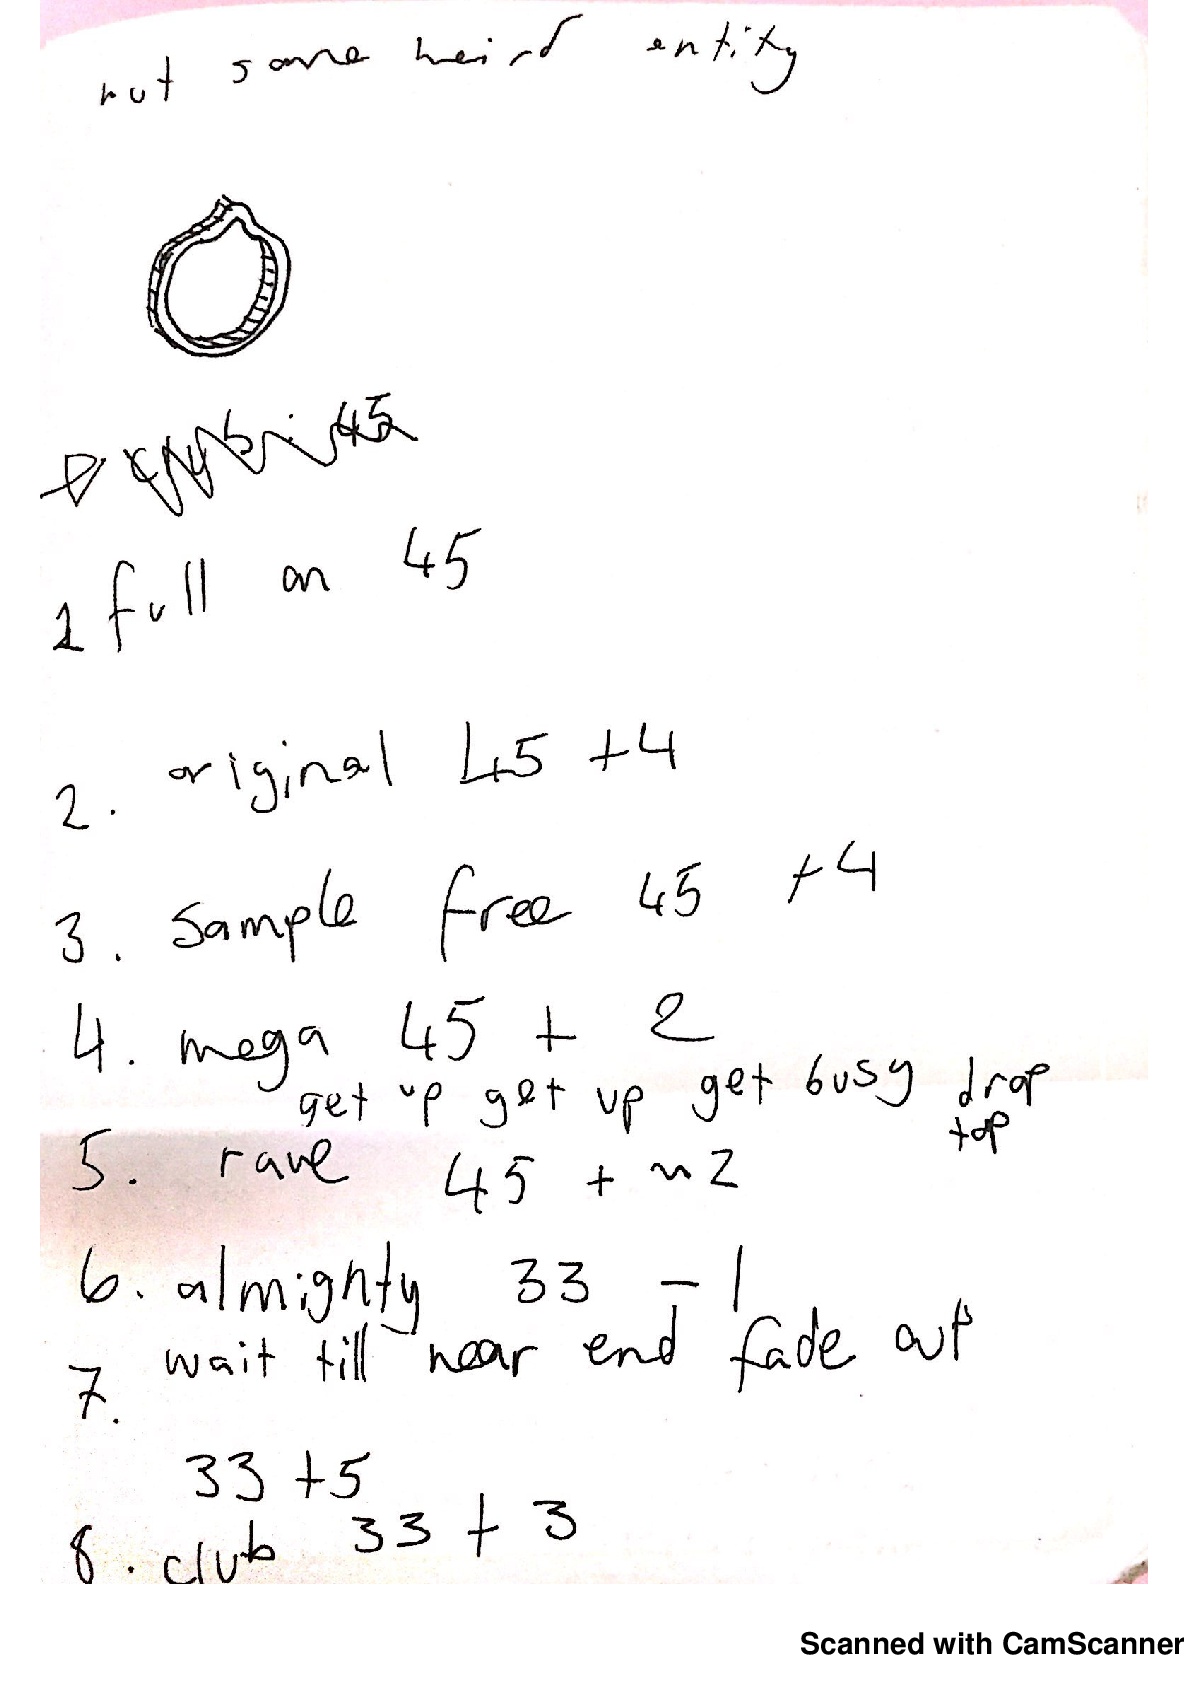 not some weird entity
45
1 full on 45
2. original 45 +4
3. sample free 45 +4
4. mega 45 + 2
get up get up get busy drop
top
5. rave 45 + 2
6. almighty 33 - 1
7. wait till near end fade out
33 +5
8. club 33 + 3
Scanned with CamScanner